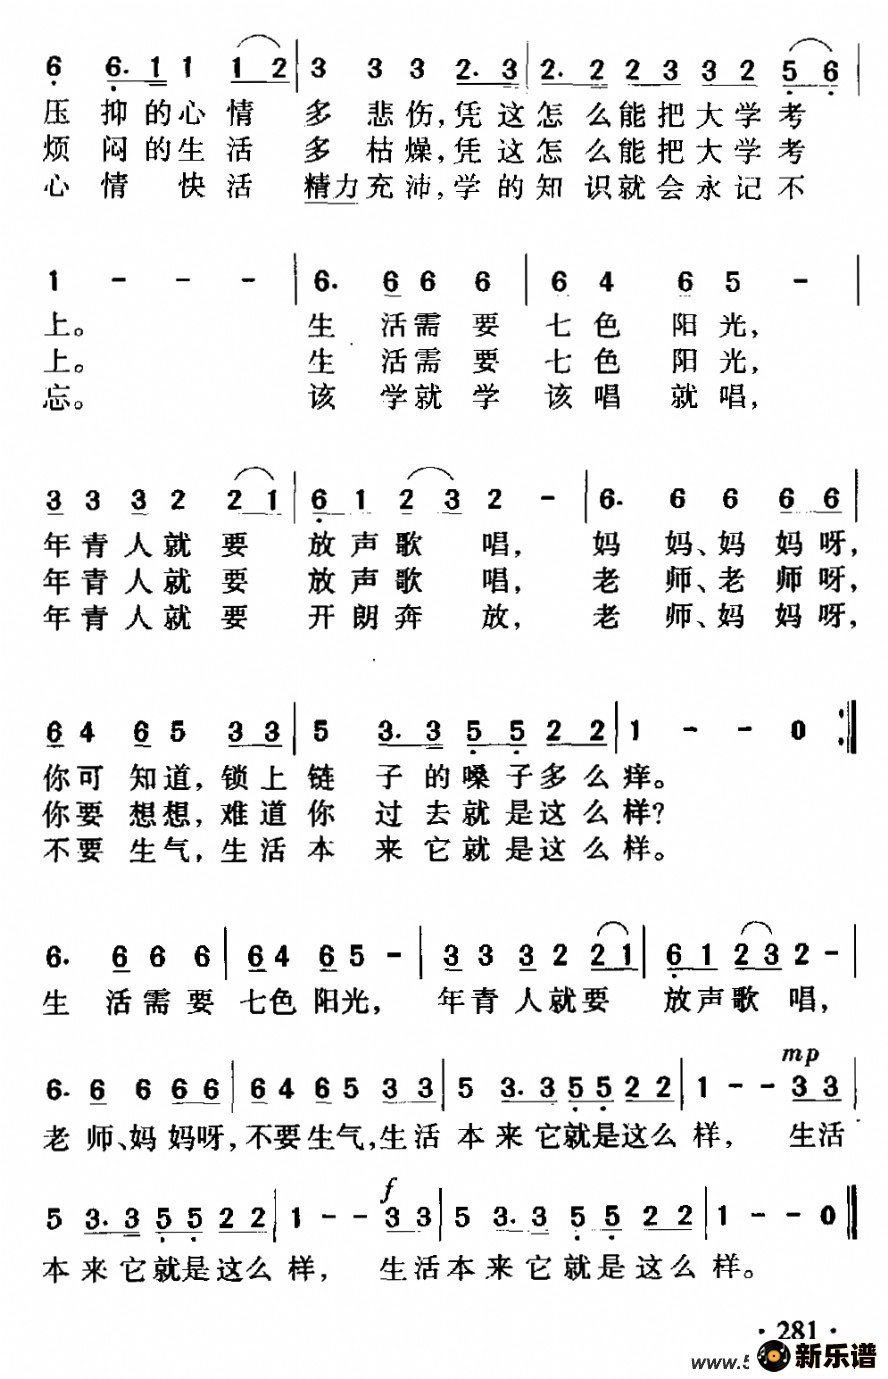 6 6. 1 1 1 2 | 3 3 3 2. 3 | 2. 2 2 3 3 2 5 6 |
压抑的心情 多悲伤,凭这怎么能把大学考
烦闷的生活 多枯燥,凭这怎么能把大学考
心情快活 精力充沛,学的知识就会永记不
1 - - - | 6. 6 6 6 | 6 4 6 5 - |
上。 生活需要七色阳光,
上。 生活需要七色阳光,
忘。 该学就学该唱就唱,
3 3 3 2 2 1 | 6 1 2 3 2 - | 6. 6 6 6 6 |
年青人就要 放声歌唱, 妈妈、妈妈呀,
年青人就要 放声歌唱, 老师、老师呀,
年青人就要 开朗奔放, 老师、妈妈呀,
6 4 6 5 3 3 | 5 3. 3 5 5 2 2 | 1 - - 0 :||
你可知道,锁上链子的嗓子多么痒。
你要想想,难道你过去就是这么样?
不要生气,生活本来它就是这么样。
6. 6 6 6 | 6 4 6 5 - | 3 3 3 2 2 1 | 6 1 2 3 2 - |
生活需要七色阳光, 年青人就要 放声歌唱,
mp
6. 6 6 6 6 | 6 4 6 5 3 3 | 5 3. 3 5 5 2 2 | 1 - - 3 3 |
老师、妈妈呀,不要生气,生活本来它就是这么样, 生活
f
5 3. 3 5 5 2 2 | 1 - - 3 3 | 5 3. 3 5 5 2 2 | 1 - - 0 ||
本来它就是这么样, 生活本来它就是这么样。
· 281 ·
www.5
新乐谱